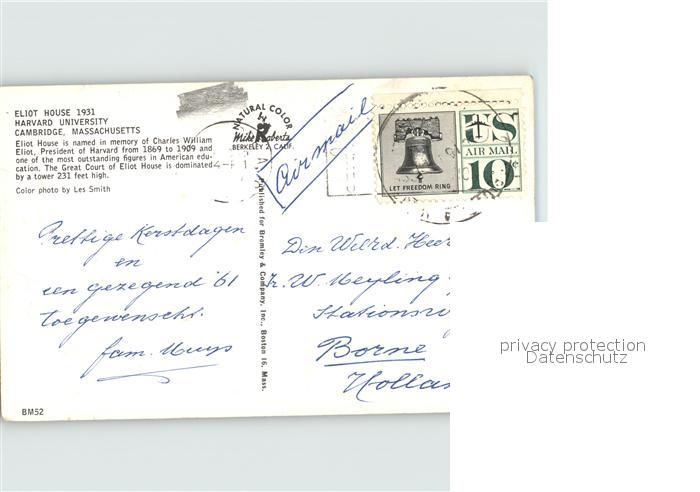 ELIOT HOUSE 1931
HARVARD UNIVERSITY
CAMBRIDGE, MASSACHUSETTS
Eliot House is named in memory of Charles William
Eliot, President of Harvard from 1869 to 1909 and
one of the most outstanding figures in American edu-
cation. The Great Court of Eliot House is dominated
by a tower 231 feet high.
Color photo by Les Smith
Prettige Kerstdagen
en
een gezegend '61
toegewenscht.
fam. Muys
BM52
NATURAL COLOR
Mike Roberts
BERKELEY 2, CALIF.
Published for Bromley & Company, Inc., Boston 16, Mass.
Air mail
LET FREEDOM RING
US
AIR MAIL
10
Den Weled. Heer
W. Meyling
Borne
privacy protection
Datenschutz